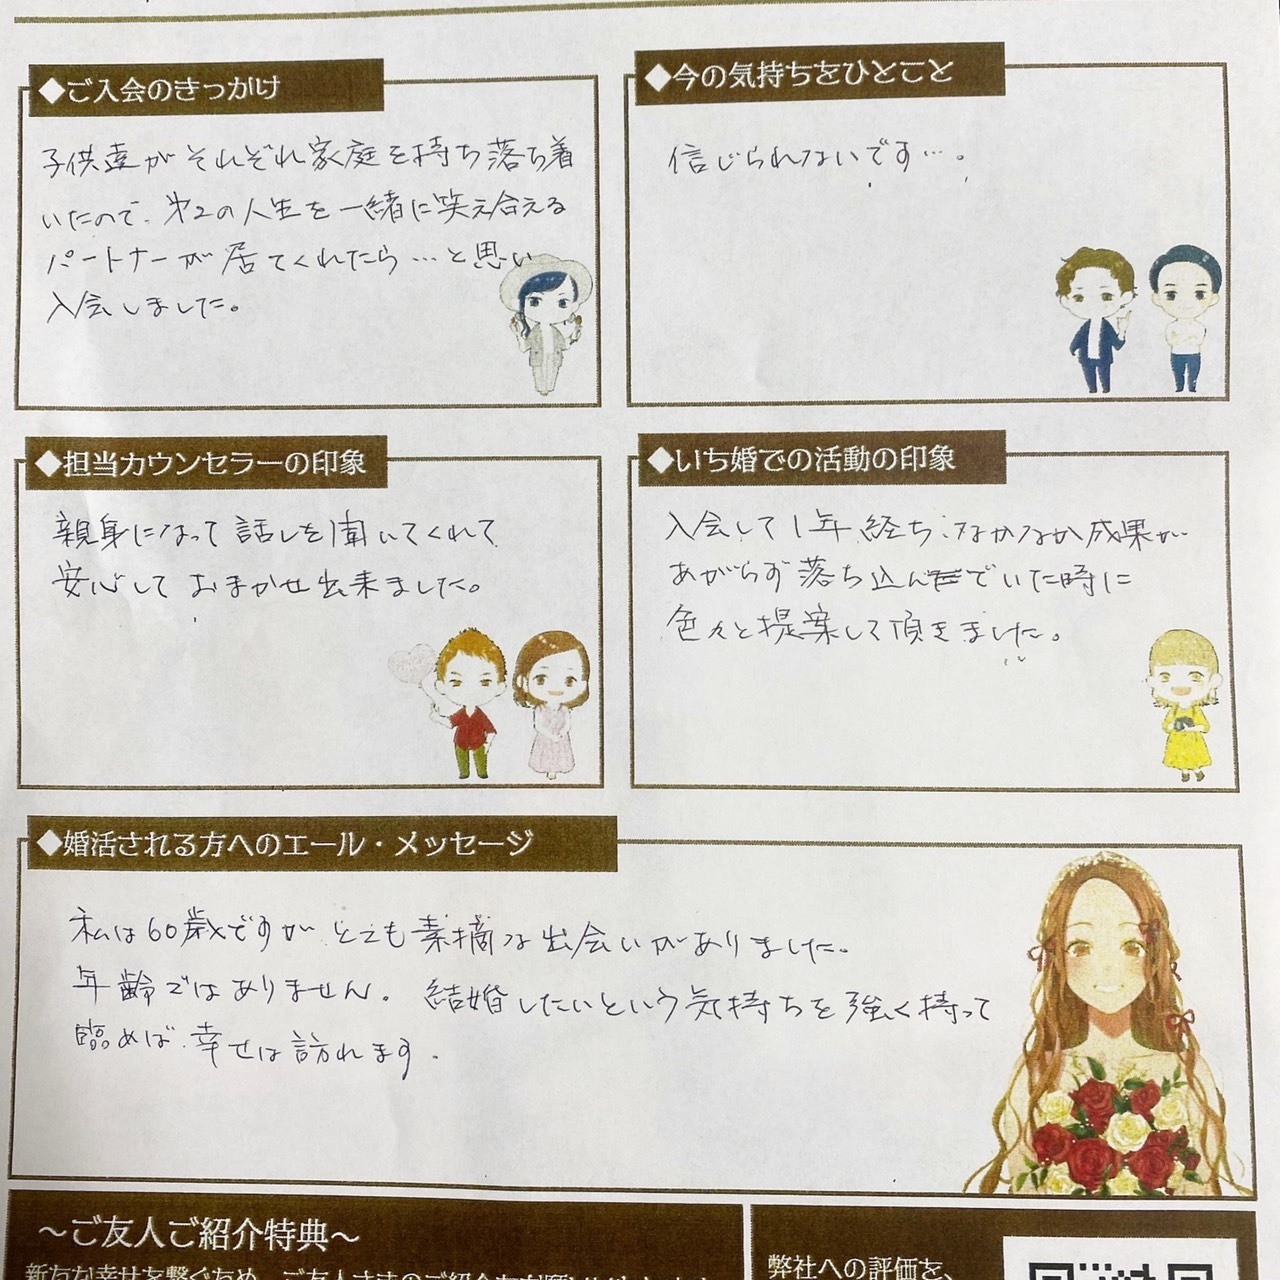 ◆ご入会のきっかけ
子供達がそれぞれ家庭を持ち落ち着
いたので、第2の人生を一緒に笑え合える
パートナーが居てくれたら…と思い
入会しました。
◆今の気持ちをひとこと
信じられないです…。
◆担当カウンセラーの印象
親身になって話しを聞いてくれて
安心しておまかせ出来ました。
◆いち婚での活動の印象
入会して1年経ち、なかなか成果が
あがらず落ち込んでいた時に
色々と提案して頂きました。
◆婚活される方へのエール・メッセージ
私は60歳ですがとても素摘な出会いがありました。
年齢ではありません。結婚したいという気持ちを強く持って
臨めば、幸せは訪れます。
～ご友人ご紹介特典～
新たな幸せを繋ぐため、ご友人さまのご紹介を
弊社への評価を、